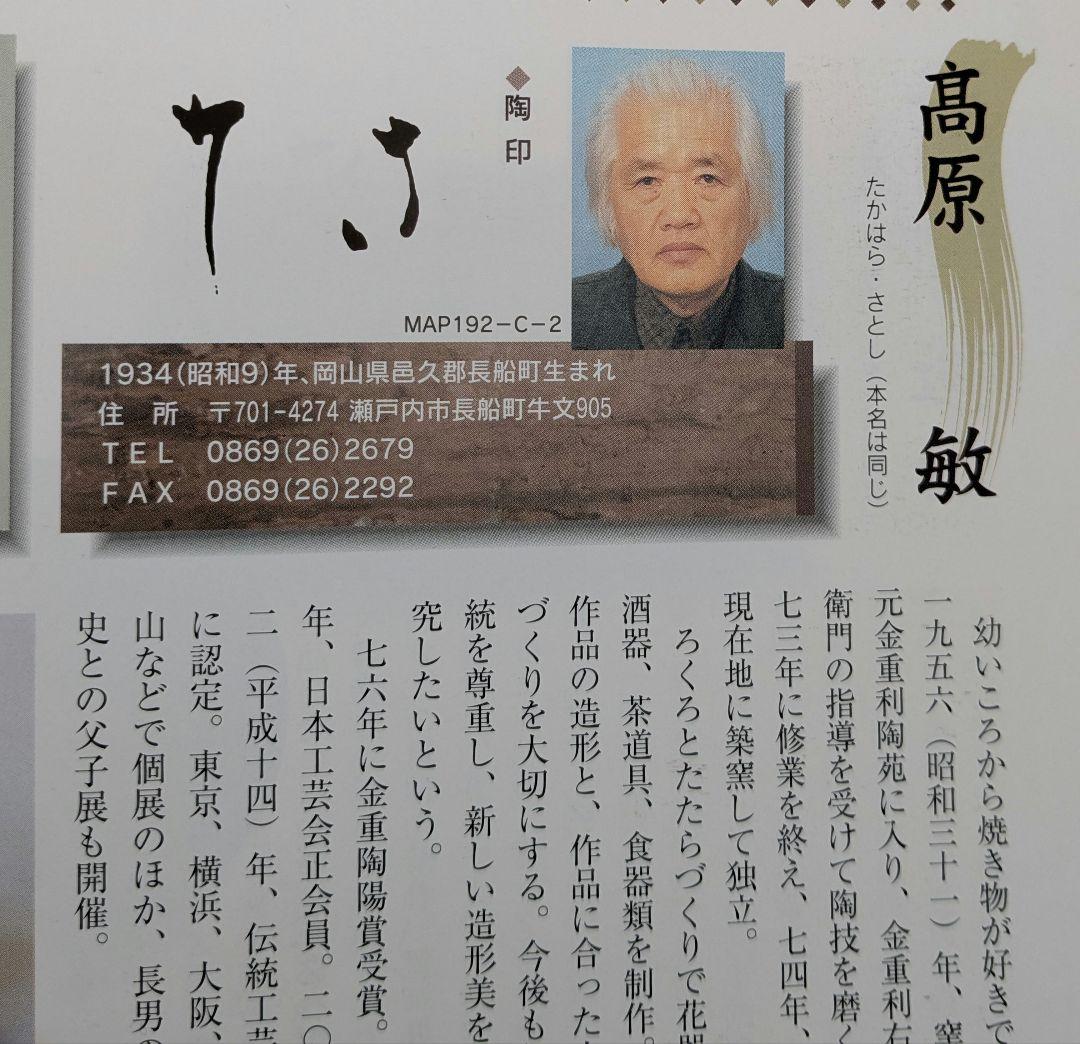 髙原 敏
たかはら・さとし（本名は同じ）
◆陶印
サ さ
MAP192－C－2
1934(昭和9)年、岡山県邑久郡長船町生まれ
住 所 〒701-4274 瀬戸内市長船町牛文905
TEL 0869(26)2679
FAX 0869(26)2292
幼いころから焼き物が好きで
一九五六（昭和三十一）年、窯
元金重利陶苑に入り、金重利右
衛門の指導を受けて陶技を磨く
七三年に修業を終え、七四年、
現在地に築窯して独立。
ろくろとたたらづくりで花器
酒器、茶道具、食器類を制作。
作品の造形と、作品に合った
づくりを大切にする。今後も
統を尊重し、新しい造形美を
究したいという。
七六年に金重陶陽賞受賞。
年、日本工芸会正会員。二〇
二（平成十四）年、伝統工芸
に認定。東京、横浜、大阪、
山などで個展のほか、長男の
史との父子展も開催。